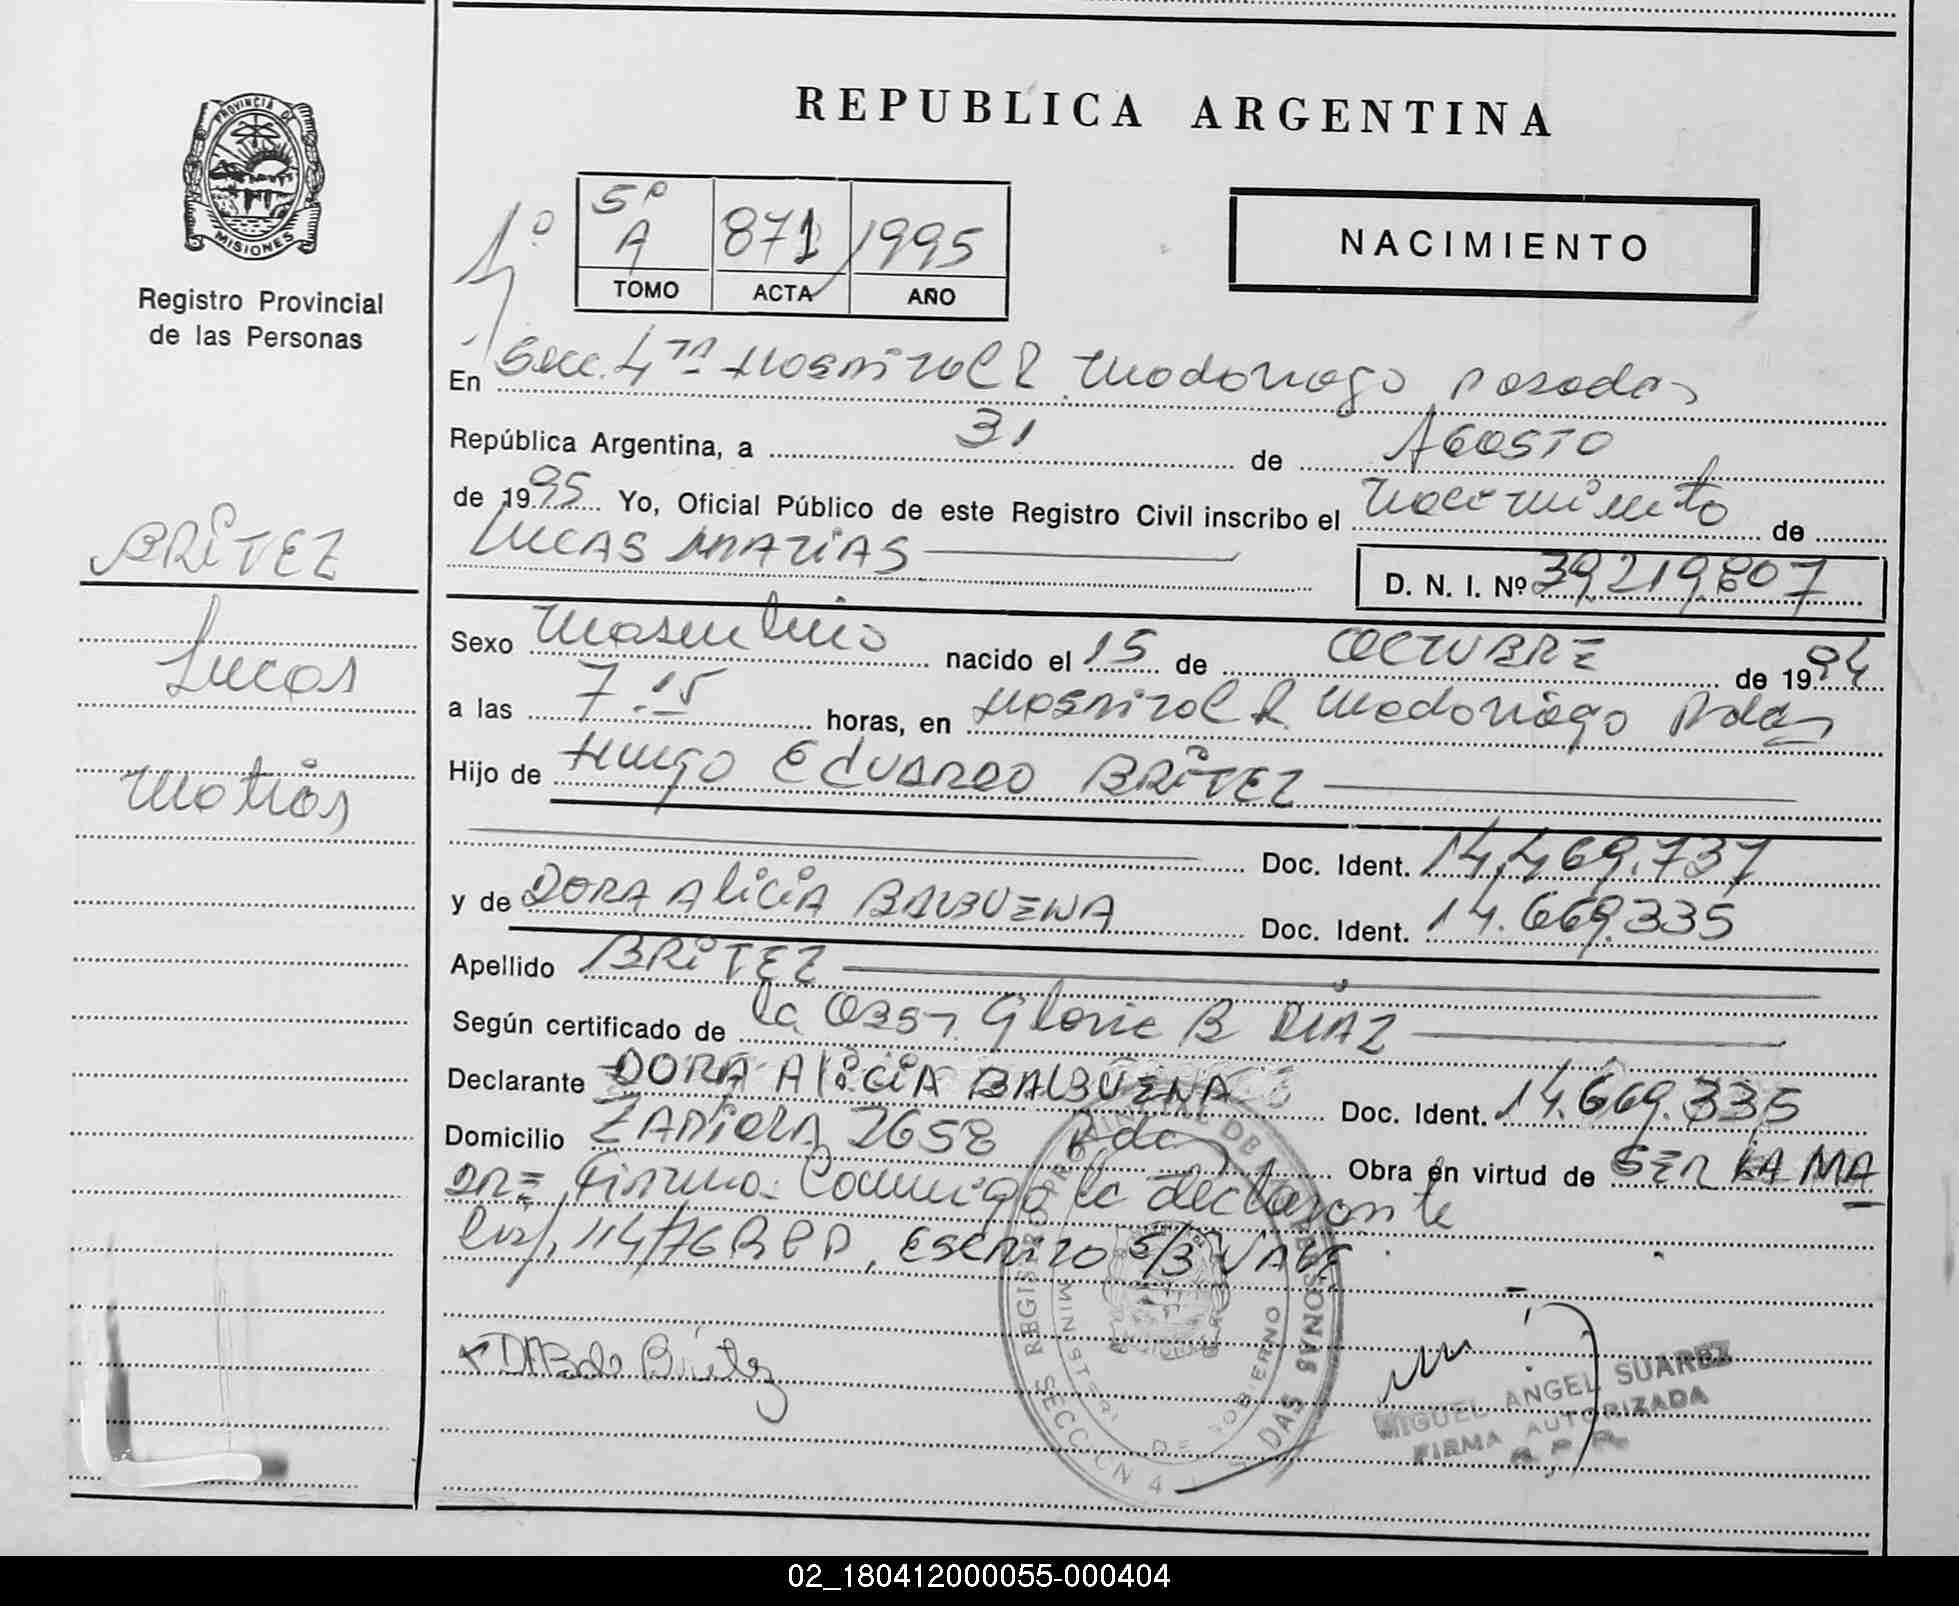 PROVINCIA DE
MISIONES
Registro Provincial
de las Personas
BRITEZ
Lucas
Matias
REPUBLICA ARGENTINA
NACIMIENTO
1º
5º A 871 1995
TOMO ACTA AÑO
En Secc. 4ta Hospital R. Madariaga Posadas
República Argentina, a 31 de AGOSTO
de 1995 Yo, Oficial Público de este Registro Civil inscribo el Nacimiento de
LUCAS MATIAS
D. N. I. Nº 39.219.807
Sexo Masculino nacido el 15 de OCTUBRE de 1994
a las 7.15 horas, en Hospital R. Madariaga Pdas
Hijo de Hugo EDUARDO BRITEZ
Doc. Ident. 14.469.737
y de DORA ALICIA BALBUENA Doc. Ident. 14.669.335
Apellido BRITEZ
Según certificado de la Obst. Gloria B DIAZ
Declarante DORA ALICIA BALBUENA Doc. Ident. 14.669.335
Domicilio ZAPIOLA 2658 Pdas Obra en virtud de SER LA MA
DRE Firma Conmigo la declarante
Disp. 114/76 RPP, Escrito S/B VALE.
DAB de Britez
REGISTRO PROVINCIAL DE LAS PERSONAS
MINISTERIO DE GOBIERNO
SECCION 4
MIGUEL ANGEL SUAREZ
FIRMA AUTORIZADA
R. P. P.
02_180412000055-000404